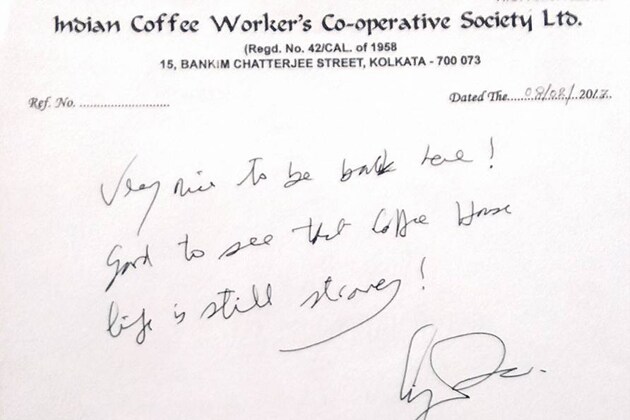 Indian Coffee Worker's Co-operative Society Ltd.
(Regd. No. 42/CAL. of 1958
15, BANKIM CHATTERJEE STREET, KOLKATA - 700 073
Ref. No. ............................ Dated The.....08/08/..2017..
Very nice to be back here!
Good to see that Coffee House
life is still strong!